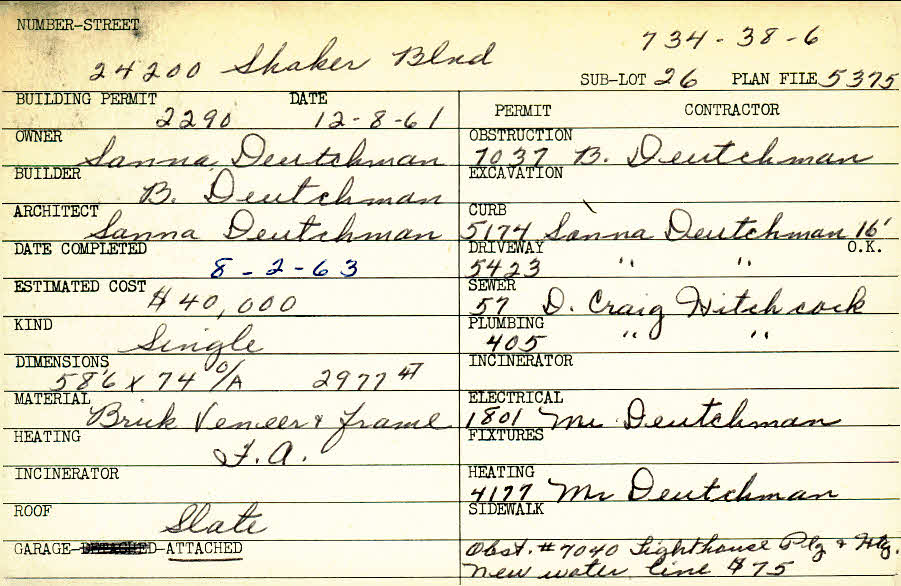 NUMBER-STREET
734-38-6
24200 Shaker Blvd
SUB-LOT 26 PLAN FILE 5375
BUILDING PERMIT DATE
2290 12-8-61
OWNER
Sanna Deutchman
BUILDER
B. Deutchman
ARCHITECT
Sanna Deutchman
DATE COMPLETED
8-2-63
ESTIMATED COST
$40,000
KIND
Single
DIMENSIONS
58'6 x 74 O/A 2977
MATERIAL
Brick Veneer & frame
HEATING
F.A.
INCINERATOR
ROOF
Slate
GARAGE-DETACHED-ATTACHED
PERMIT CONTRACTOR
OBSTRUCTION
7037 B. Deutchman
EXCAVATION
CURB
5174 Sanna Deutchman 16'
DRIVEWAY O.K.
5423 " "
SEWER
57 D. Craig Hitchcock
PLUMBING
405 " "
INCINERATOR
ELECTRICAL
1801 Mr Deutchman
FIXTURES
HEATING
4177 Mr Deutchman
SIDEWALK
Obst. #7040 Lighthouse Plg & Htg.
New water line $75